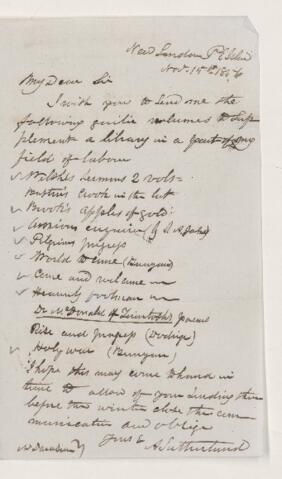 New London P E Island
Nov. 15th 18
My Dear Sir
I wish you to send me the
following volumes to sup
plement a library in a part of my
field of labour
Sermons 2 vols
in the lot
Brooks apples of gold
Anxious enquirer (J. A. James)
Pilgrims progress
World to come (Bunyan)
Come and welcome
Heavenly footman
Dr McDonald of Poems
Rise and progress (Dodrige)
Holy war (Bunyan)
I hope this may come to hand in
time to allow of your sending them
before the winter close the com
munication and oblige
Yours &
A Sutherland